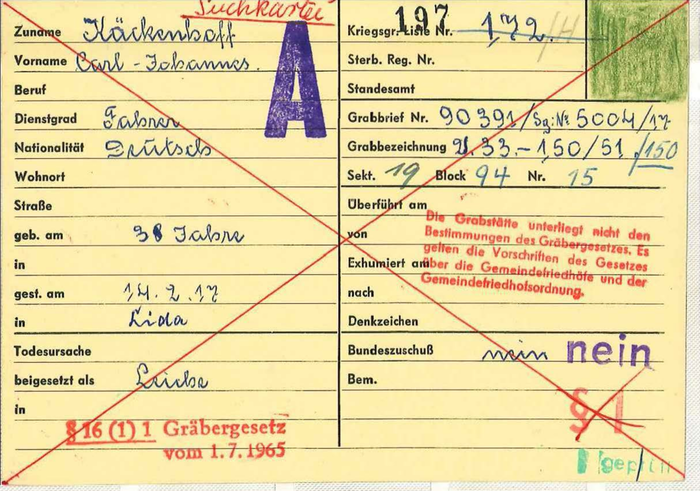 Suchkartei
Zuname Käckenhoff
Vorname Carl-Johannes.
Beruf
Dienstgrad Fahrer
Nationalität Deutsch
Wohnort
Straße
geb. am 38 Jahre
in
gest. am 14.2.17
in Lida
Todesursache
beigesetzt als Leiche
in
§ 16 (1) 1 Gräbergesetz
vom 1.7.1965
A
197
Kriegsgr. Liste Nr. 172.
Sterb. Reg. Nr.
Standesamt
Grabbrief Nr. 90391/Sg: Nr 5004/17
Grabbezeichnung U. 33.-1,50/51 /150
Sekt. 19 Block 94 Nr. 15
Überführt am
von
Exhumiert am
nach
Denkzeichen
Die Grabstätte unterliegt nicht den
Bestimmungen des Gräbergesetzes. Es
gelten die Vorschriften des Gesetzes
über die Gemeindefriedhöfe und der
Gemeindefriedhofsordnung.
Bundeszuschuß nein nein
Bem.
§ 1